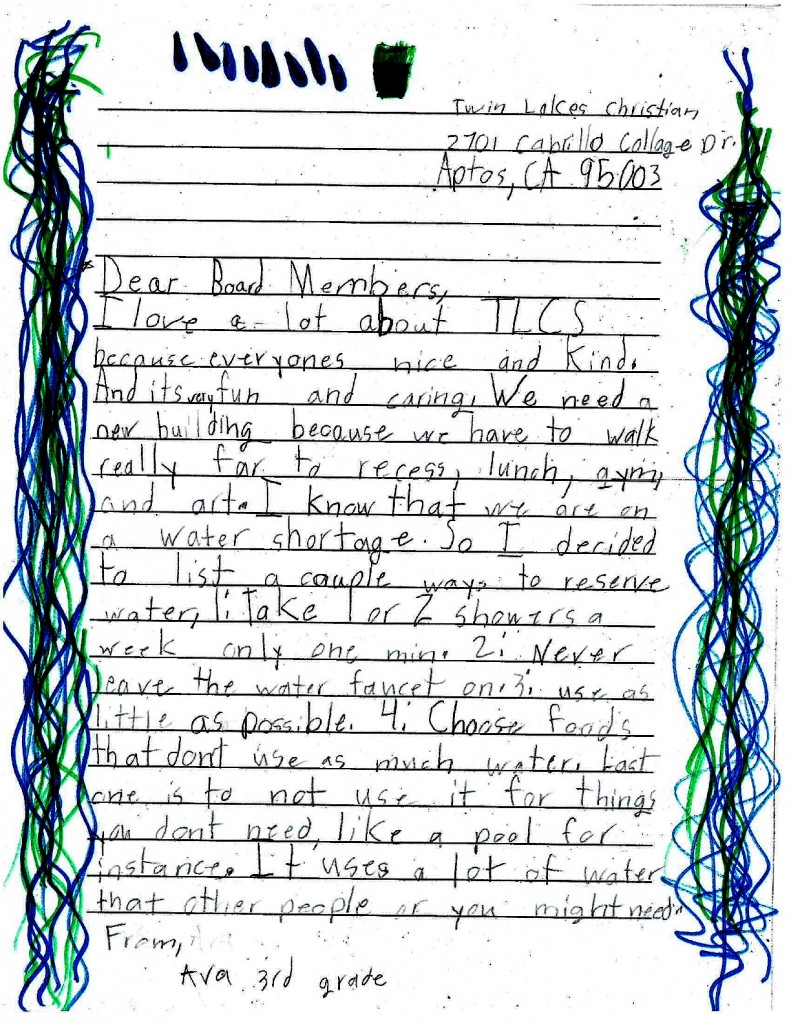 Twin Lakes Christian
2701 Cabrillo Collage Dr.
Aptos, CA 95003
Dear Board Members,
I love a lot about TLCS
because everyones nice and kind.
And its very fun and caring. We need a
new building because we have to walk
really far to recess, lunch, gym,
and art. I know that we are on
a water shortage. So I decided
to list a couple ways to reserve
water, 1: Take 1 or 2 showers a
week only one min. 2: Never
leave the water faucet on. 3: use as
little as possible. 4: Choose foods
that dont use as much water. Last
one is to not use it for things
you dont need, like a pool for
instance. It uses a lot of water
that other people or you might need.
From,
Ava 3rd grade